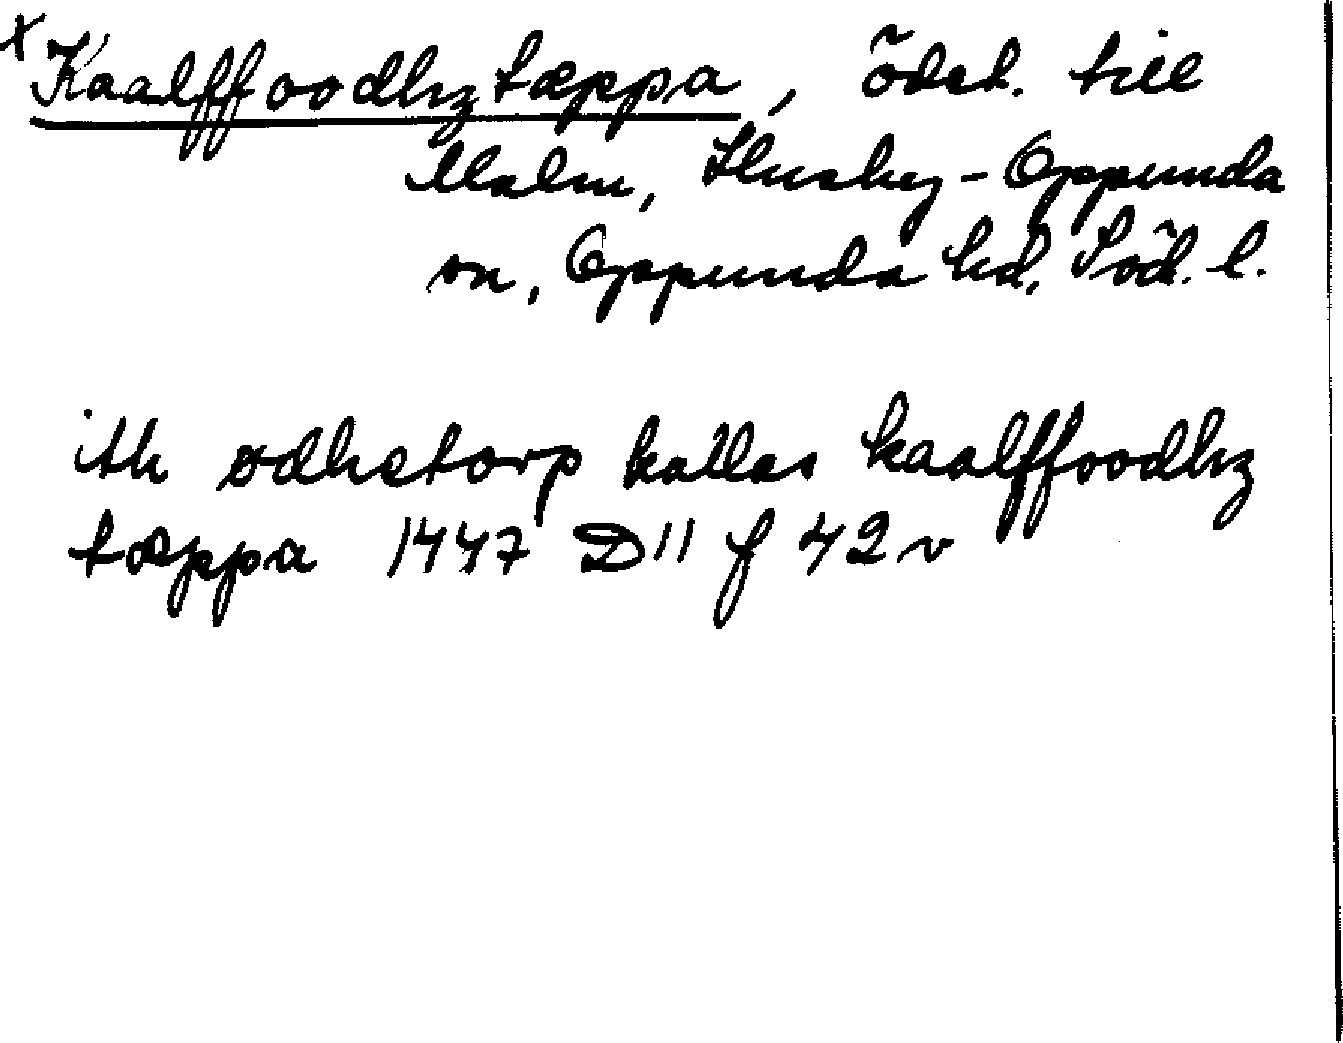 x Kaalffoodhz tæppa, ödet. till
Malm, Husby-Oppunda
sn, Oppunda hd, Söd. l.
ith ødhetorp kallas kaalffoodhz
tæppa 1447 D 11 f 42 v